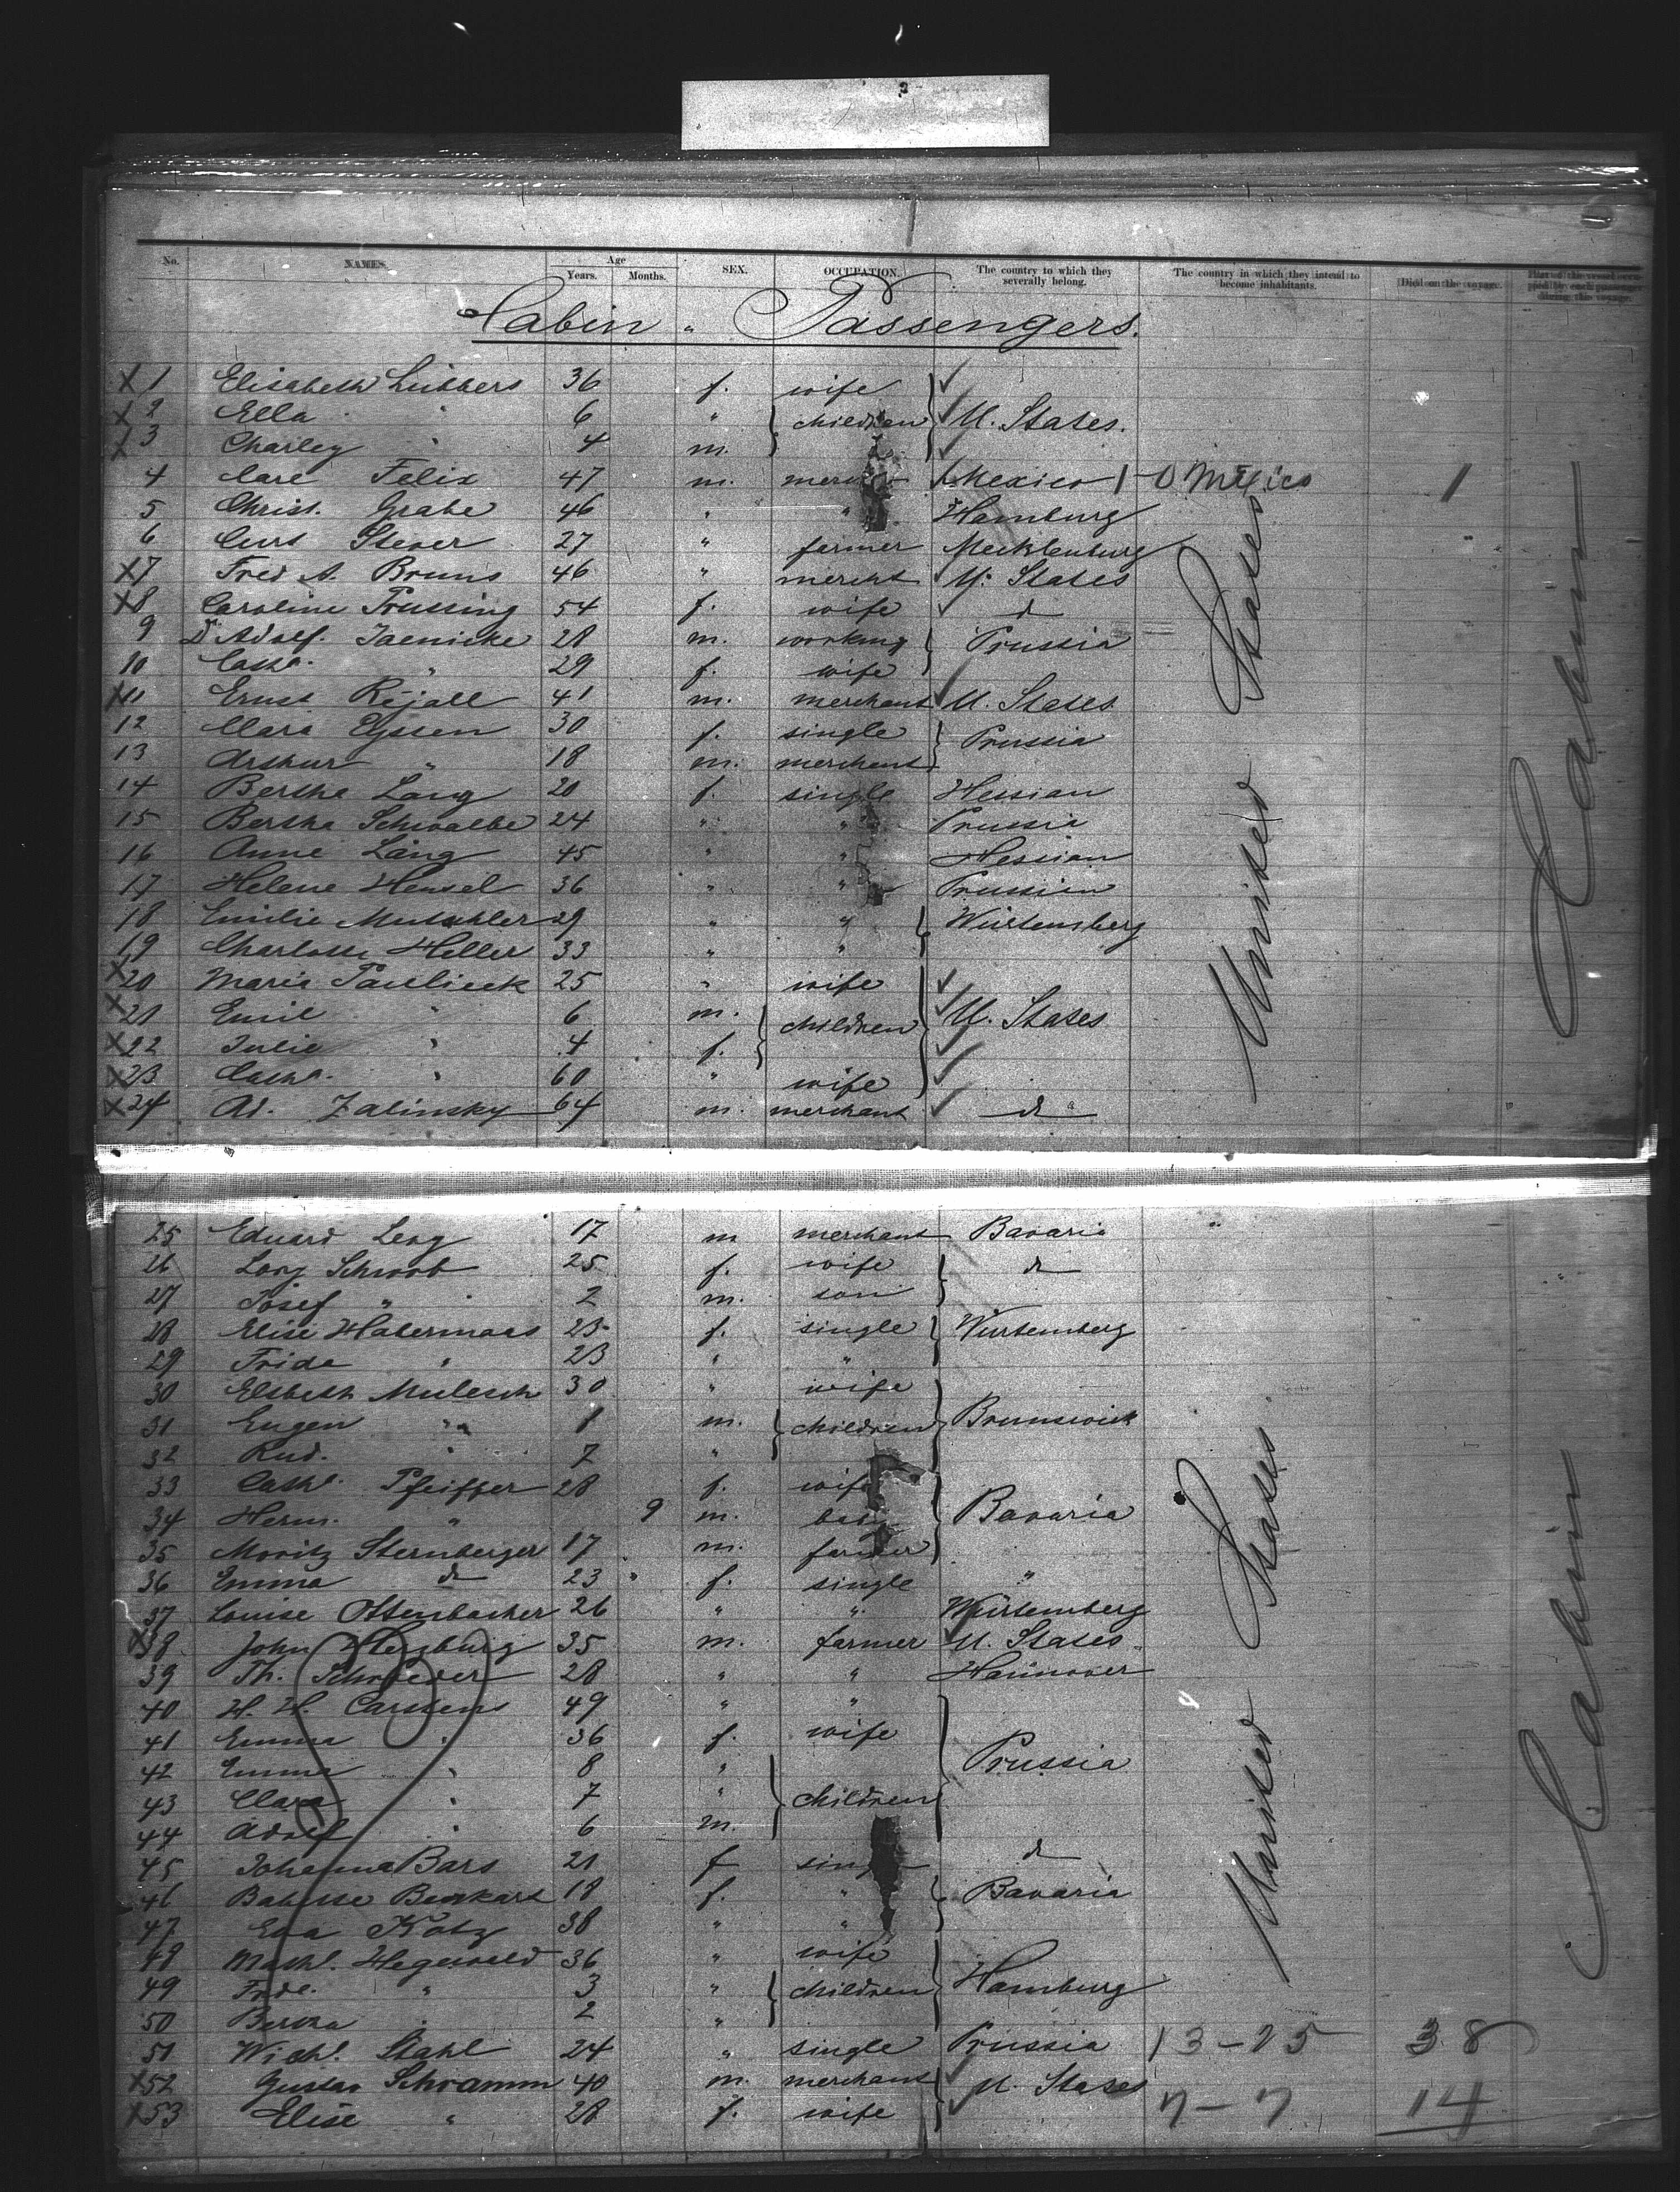 No. NAMES. Age Years. Months. SEX. OCCUPATION. The country to which they severally belong. The country in which they intend to become inhabitants. Died on the voyage. Part of the vessel occupied by each passenger during the voyage.
Cabin " Passengers.
X 1 Elisabeth Lübbers 36 f. wife
X 2 Ella " 6 " children U. States.
X 3 Charley " 4 m.
4 Carl Felix 47 m. Mexico 1-0 Mexico 1
5 Christ. Grabe 46 " " Hamburg
6 Curt Stever 27 " farmer Mecklenburg
X7 Fred A. Bruns 46 " mercht U. States
X8 Caroline Trussing 54 f. wife d
9 Dr. Adolf. Jaenicke 28 m. working Prussia
10 Cathr. " 29 f. wife
X11 Ernst Rejall 41 m. merchant U. States
12 Clara Eyssen 30 f. single Prussia
13 Arthur " 18 m. merchant
14 Bertha Lang 20 f. single Hessian
15 Bertha Schwalbe 24 " " Prussia
16 Anne Lang 45 " " Hessian
17 Helene Hensel 36 " " Prussian
18 Emilie Mutschler 29 " " Würtemberg
19 Charlotte Heller 33 " "
X20 Maria Paulieck 25 " wife
X21 Emil " 6 m. children U. States
X22 Julie " 4 f.
X23 Cathr. " 60 " wife
X24 Ad. Zalinsky 64 m. merchant d
United States
Cabin
25 Eduard Levy 17 m merchant Bavaria "
26 Schwob 25 f. wife d
27 Josef " 2 m. son
28 Elise Habermaas 23 f. single Würtemberg
29 Frida " 23 " "
30 Elsbeth 30 " wife
31 Eugen " 1 m. children Brunswick
32 Rud. " 7 "
33 Cathr. Pfeiffer 28 f. wife
34 Herm. " 9 m. baby Bavaria
35 Moritz Sternberger 17 m. farmer
36 Emma d 23 " f. single "
37 Louise Ottenbacher 26 " " Würtemberg
X38 John Herzburg 35 m. farmer U. States
39 Th. Schroeder 28 " " Hannover
40 H. H. Carstens 49 " "
41 Emma " 36 f. wife
42 Emma " 8 " Prussia
43 Clara " 7 " children
44 Adolf " 6 m.
45 Johanna Bars 21 f single d
46 Babette 18 f. " Bavaria
47 Eva Kotz 38 " "
48 Math. Hegewald 36 " wife
49 Frdr. " 3 " children Hamburg
50 Bertha " 2 "
51 Wilh. Stahl 24 " single Prussia 13-25 38
X52 Gustav Schramm 40 m. merchant U. States
X53 Elise " 28 f. wife 7-7 14
United States
Cabin